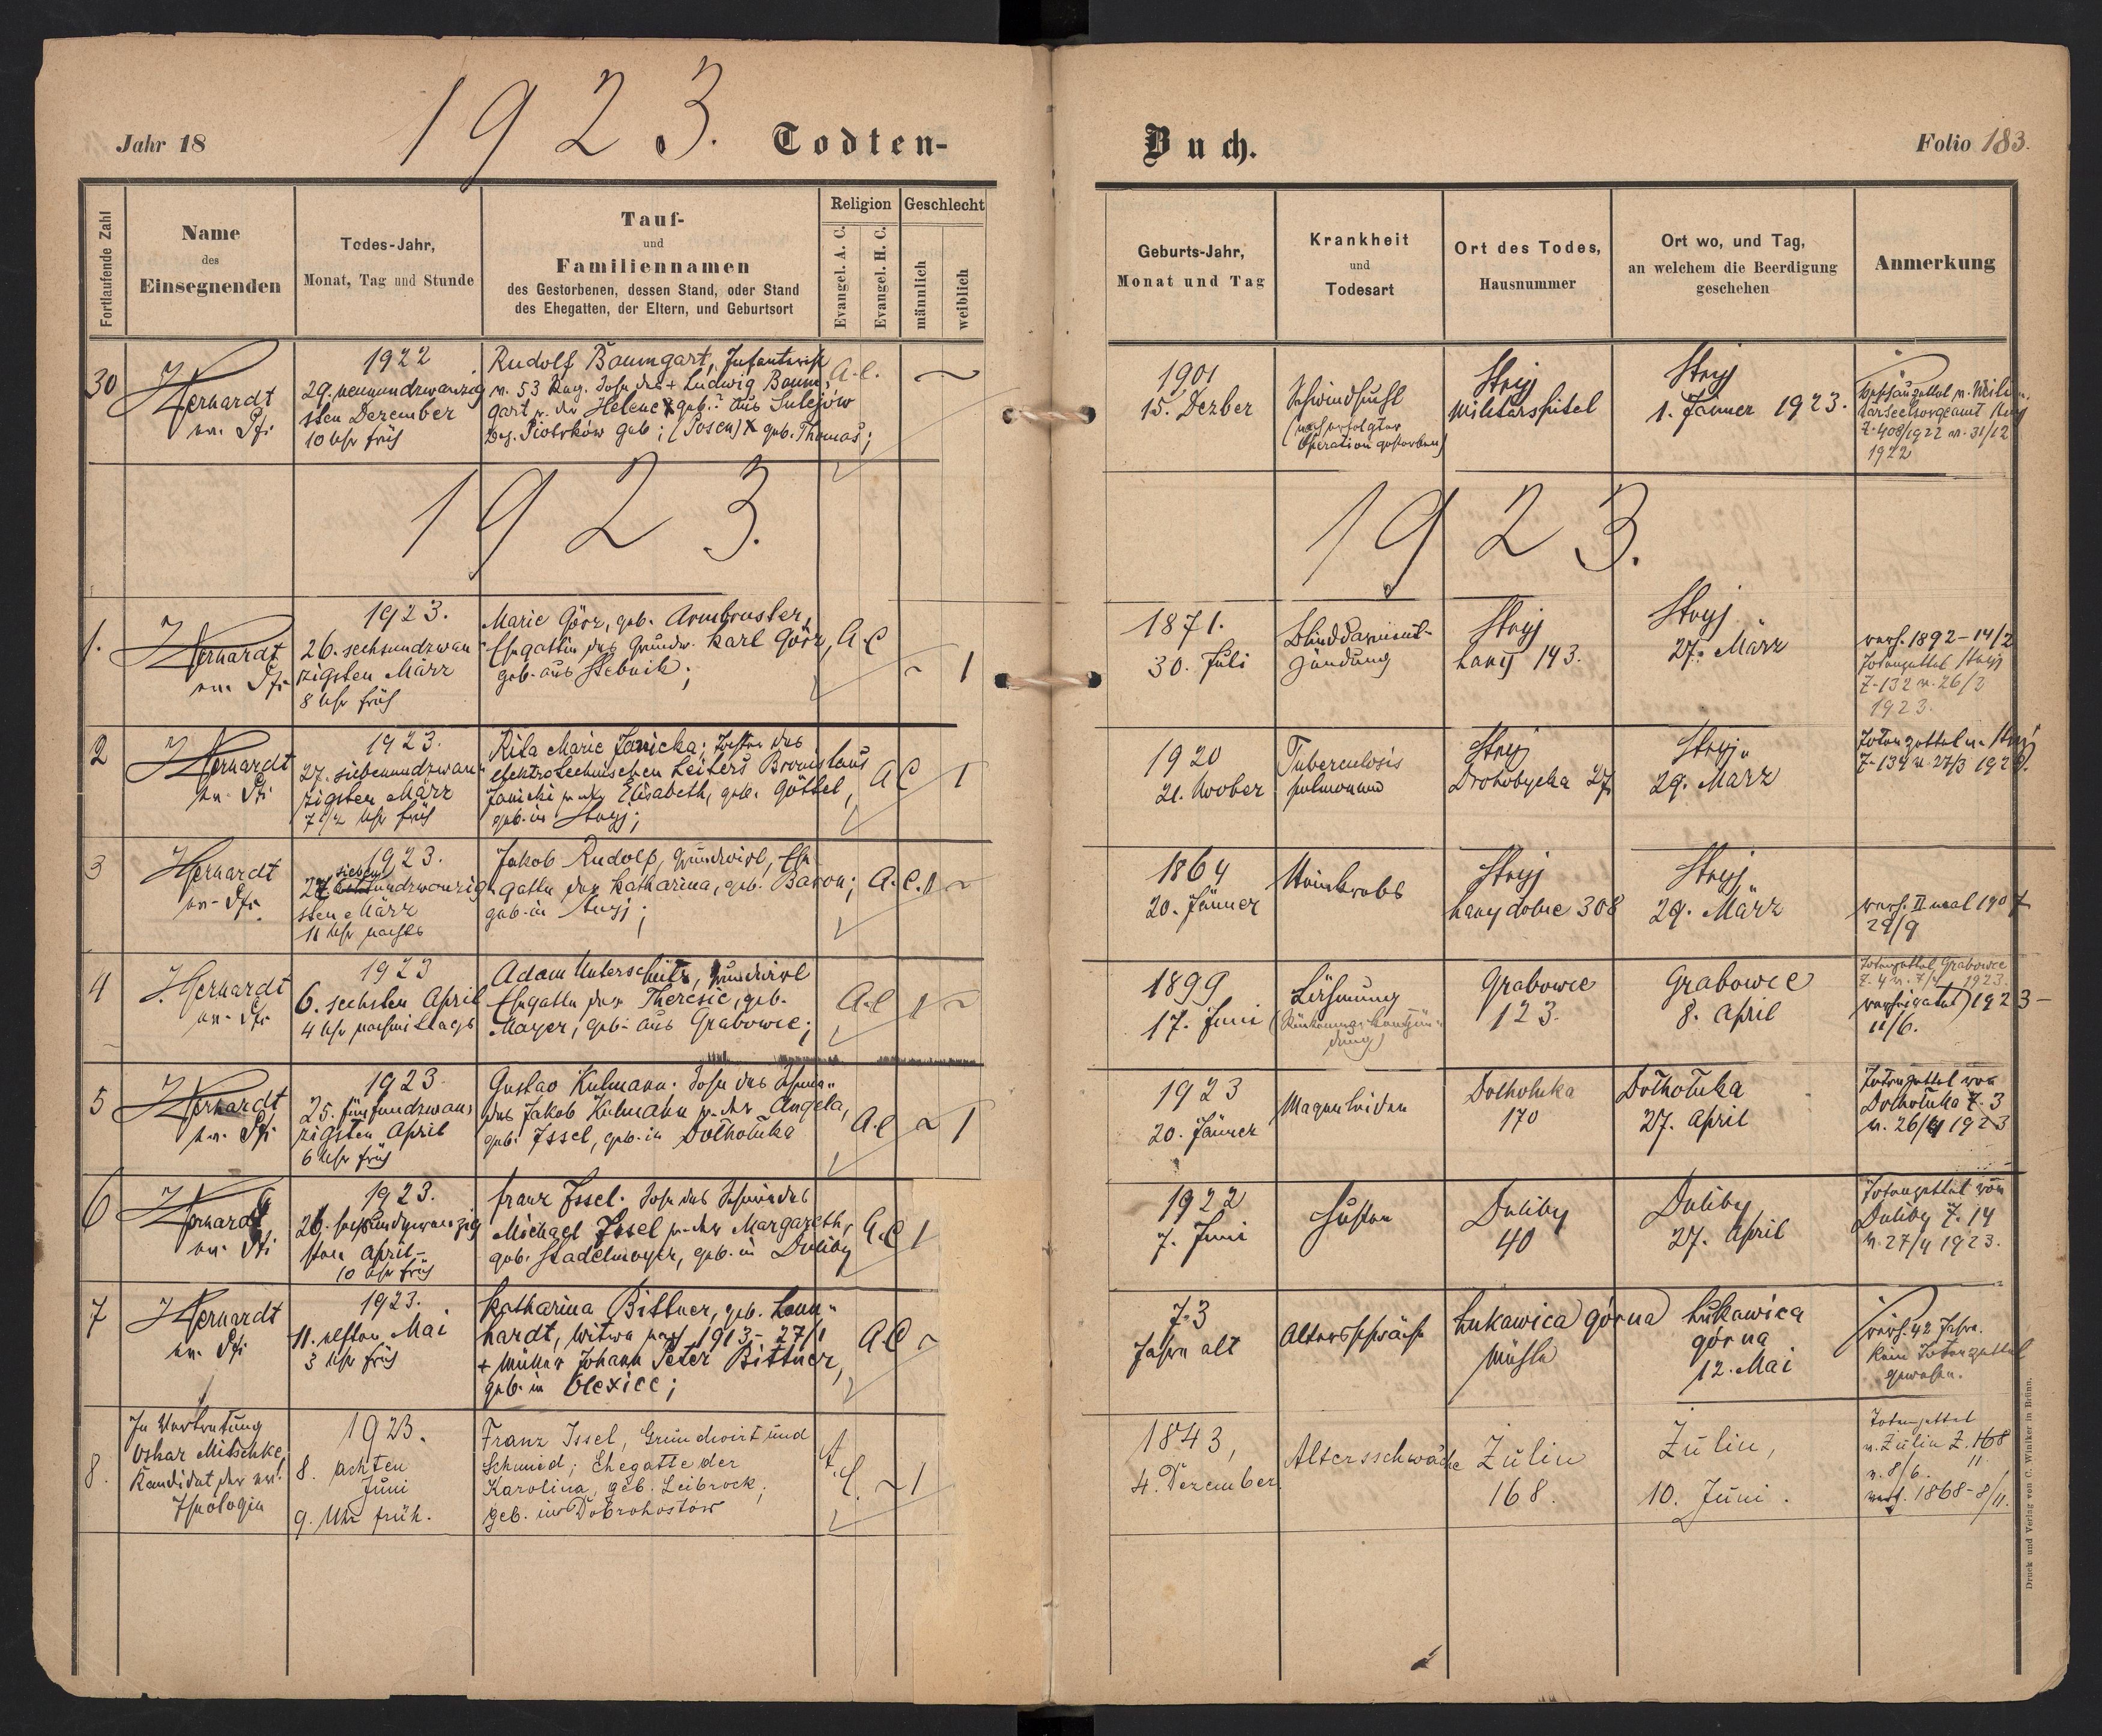 1923.
Jahr 18
Todten-
Buch.
Folio 183.
Fortlaufende Zahl
Name
des
Einsegnenden
Todes-Jahr,
Monat, Tag und Stunde
Tauf-
und
Familiennamen
des Gestorbenen, dessen Stand, oder Stand
des Ehegatten, der Eltern, und Geburtsort
Religion
Evangel. A. C.
Evangel. H. C.
Geschlecht
männlich
weiblich
Geburts-Jahr,
Monat und Tag
Krankheit
und
Todesart
Ort des Todes,
Hausnummer
Ort wo, und Tag,
an welchem die Beerdigung
geschehen
Anmerkung
30
1922
29. neunundzwanzig
sten Dezember
10 Uhr früh
Rudolf Baumgart, Infanterist
v. 53 Reg. Sohn des + Ludwig Baum-
gart u. der Helene geb. aus Sulejów
Bez. Piotrków geb; (Posen) geb. Thomas;
A.C.
1901
15. Dezber
Schwindsucht
(nach erfolgter
Operation gestorben)
Stryj
Militärspital
Stryj
1. Jänner 1923.
Z. 408/1922 v. 31/12
1922
1923.
1923.
1.
1923.
26. sechsundzwan
zigsten März
8 Uhr früh
Marie Görz, geb. Armbruster,
Ehegattin des Grundw. Karl Görz,
geb. aus Stebnik;
A.C
1
1871.
30. Juli
Blinddarment-
zündung
Stryj
Lany 143.
Stryj
27. März
verh. 1892-14/2
Totenzettel Stryj
Z. 132 v. 26/3
1923.
2
1923.
27. siebenundzwan
zigsten März
7 1/2 Uhr früh
Rita Marie Janicka; Tochter des
elektrotechnischen Leiters Bronislaus
Janicki u. der Elisabeth, geb. Göttel,
geb. in Stryj;
A C
1
1920
21. Novber
Tuberculosis
pulmonum
Stryj
Drohobycka 27
Stryj
29. März
Totenzettel v. Stryj
Z. 134 v. 27/3 1923.
3
Herhardt
1923.
27 sieben undzwanzig
sten März
11 Uhr nachts
Jakob Rudolf, Grundwirt, Ehe
gatte der Katharina, geb. Baron;
geb. in Stryj;
A.C.
1864
20. Jänner
Stryj
Lany dolne 308
Stryj
29. März
verh. II mal 1907
29/9
4
J. Herhardt
1923
6. sechsten April
4 Uhr nachmittags
Adam Unterschütz, Grundwirt
Ehegatte der Theresie, geb.
Mayer, geb. aus Grabowce;
A.C
1899
17. Juni
Lähmung
Grabowce
123.
Grabowce
8. April
Totenzettel Grabowce
Z. 4 v. 7/4 1923.
verheiratet 1923-
11/6.
5
1923
25. fünfundzwan
zigsten April
6 Uhr früh
Gustav Kulmann. Sohn des Schmie-
des Jakob Kulmann u. der Angela,
geb. Issel, geb. in Dolhołuka
A.C
1
1923
20. Jänner
Magenleiden
Dolholuka
170
Dolhołuka
27. April
Totenzettel von
Dolhołuka Z. 3
v. 26/4 1923
6
1923.
26. sechsundzwanzig
sten April
10 Uhr früh
Franz Issel. Sohn des Schmiedes
Michael Issel u. der Margareth,
geb. Stadelmayer, geb. in Duliby
A.C
1
1922
7. Juni
Husten
Duliby
40
Duliby
27. April
Totenzettel von
Duliby Z. 14
v. 27/4 1923.
7
1923.
11. elften Mai
3 Uhr früh
Katharina Bittner, geb. Leon-
hardt, Witwe nach 1913-27/1
+ Müller Johann Peter Bittner,
geb. in Olexice;
A.C
73
Jahre alt
Altersschwäche
Łukawica górna
Mühle
Łukawica
górna
12. Mai
verh. 42 Jahre.
Kein Totenzettel
gewesen.
8.
In Vertretung
Oskar Mitschke,
Kandidat der ev.
Theologie
1923.
8. achten
Juni
9. Uhr früh.
Franz Issel, Grundwirt und
Schmied; Ehegatte der
Karolina, geb. Leibrock;
geb. in Dobrohostów
A.C.
1
1843,
4. Dezember.
Altersschwäche
Zulin
168.
Zulin,
10. Juni.
Totenzettel
v. Zulin Z. 168
v. 8/6.
verh. 1868-8/11.
Druck und Verlag von C. Winiker in Brünn.